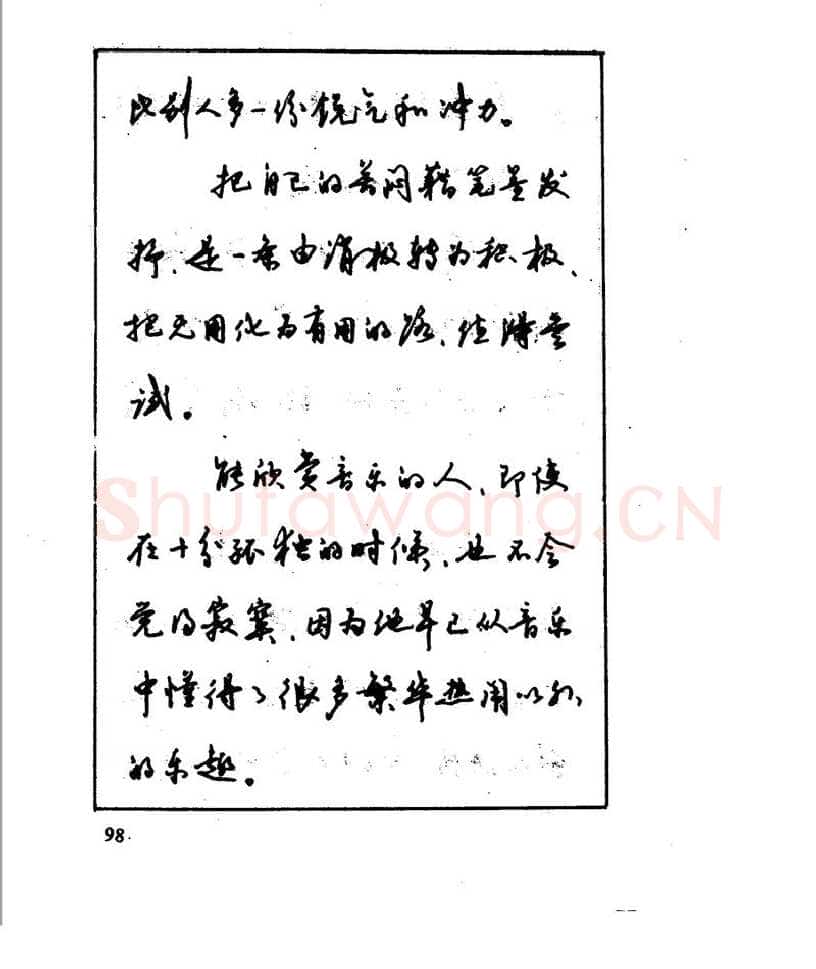 比别人多一份锐气和冲力。
把自己的苦闷藉笔墨发
抒，是一条由消极转为积极、
把无用化为有用的路，值得尝
试。
能欣赏音乐的人，即使
在十分孤独的时候，也不会
觉得寂寞，因为他早已从音乐
中懂得了很多繁华热闹以外
的乐趣。
98
Shufawang.CN